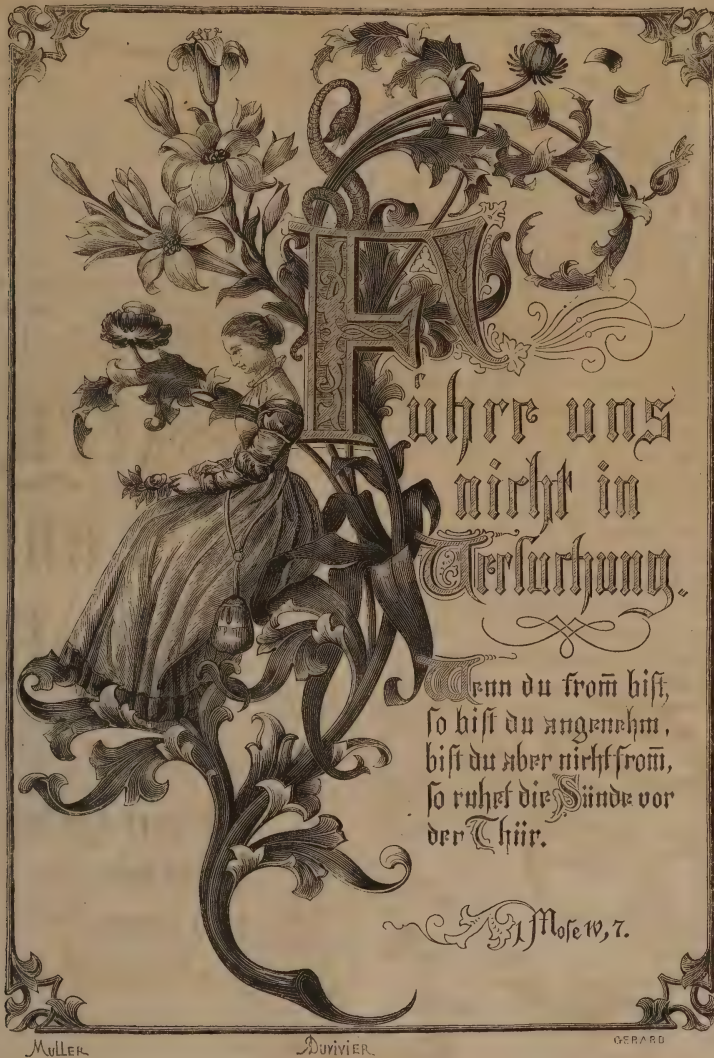 Führe uns
nicht in
Versuchung.
Wenn du from̅ bist,
so bist du angenehm,
bist du aber nicht from̅,
so ruhet die Sünde vor
der Thür.
1 Mose IV, 7.
MULLER
DUVIVIER
GERARD